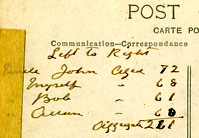 POST
CARTE PO
Communication—Correspondence
Left to Right
Uncle John Aged 72
Myself " 68
Bob " 61
" 60
Aggregate 261